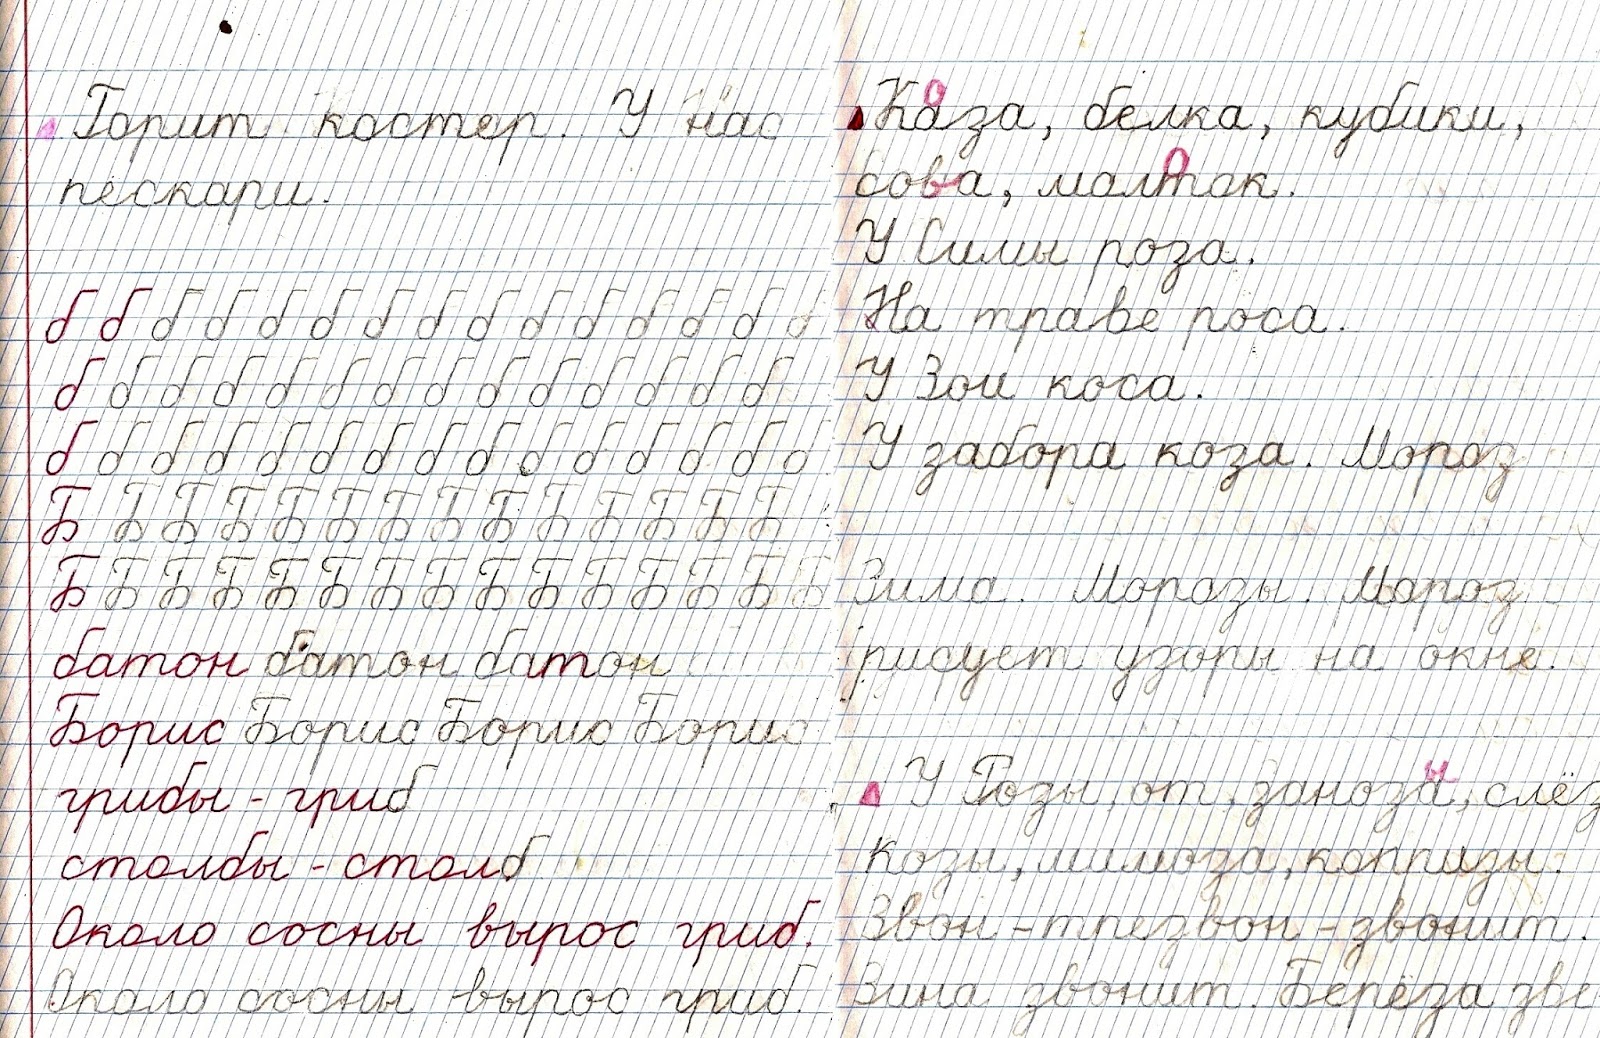 Горит костер. У нас
пескари.
б б б б б б б б б б б б б б б
б б б б б б б б б б б б б б
б б б б б б б б б б б б б б б
Б Б Б Б Б Б Б Б Б Б Б Б Б Б
Б Б Б Б Б Б Б Б Б Б Б Б Б Б Б
батон батон батон
Борис Борис Борис Борис
грибы - гриб
столбы - столб
Около сосны вырос гриб.
Около сосны вырос гриб.
о
Каза, белка, кубики,
о
сова, малток.
У Симы роза.
На траве роса.
У Зои коса.
У забора коза. Мороз
Зима. Морозы. Мороз
рисует узоры на окне.
ы
У Розы, от, заноза, слёз
Козы, мимоза, копризы.
Звон - трезвон - звонит.
Зина звонит. Берёза зве